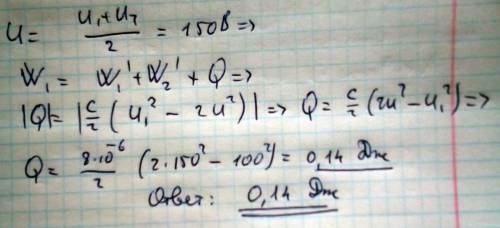 U = (U₁+U₂)/2 = 150В =>
W₁ = W₁' + W₂' + Q =>
|Q| = |C/2 (U₁² - 2U²)| => Q = C/2 (2U² - U₁²) =>
Q = 8·10⁻⁶/2 (2·150² - 100²) = 0,14 Дж
Ответ: 0,14 Дж